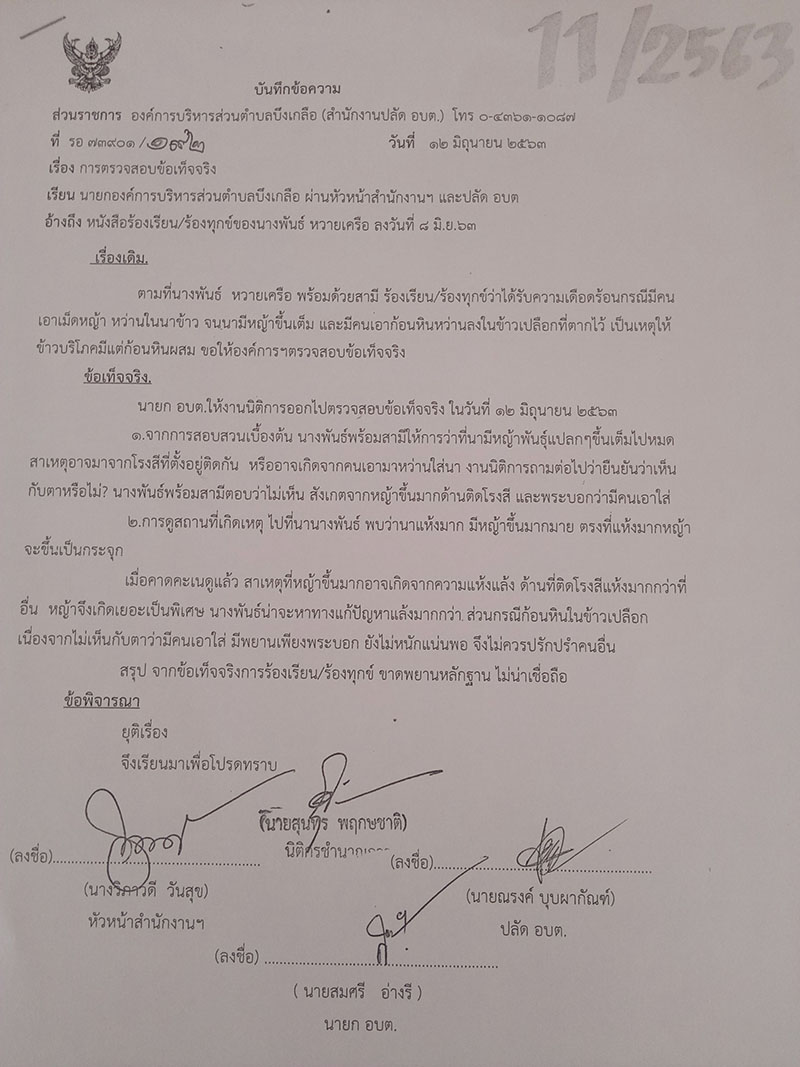 11/2563
บันทึกข้อความ
ส่วนราชการ องค์การบริหารส่วนตำบลบึงเกลือ (สำนักงานปลัด อบต.) โทร ๐-๔๓๖๑-๑๐๘๗
ที่ รอ ๗๓๙๐๑ /๑๙๒ วันที่ ๑๒ มิถุนายน ๒๕๖๓
เรื่อง การตรวจสอบข้อเท็จจริง
เรียน นายกองค์การบริหารส่วนตำบลบึงเกลือ ผ่านหัวหน้าสำนักงานฯ และปลัด อบต
อ้างถึง หนังสือร้องเรียน/ร้องทุกข์ของนางพันธ์ หวายเครือ ลงวันที่ ๘ มิ.ย.๖๓
เรื่องเดิม.
ตามที่นางพันธ์ หวายเครือ พร้อมด้วยสามี ร้องเรียน/ร้องทุกข์ว่าได้รับความเดือดร้อนกรณีมีคน
เอาเม็ดหญ้า หว่านในนาข้าว จนนามีหญ้าขึ้นเต็ม และมีคนเอาก้อนหินหว่านลงในข้าวเปลือกที่ตากไว้ เป็นเหตุให้
ข้าวบริโภคมีแต่ก้อนหินผสม ขอให้องค์การฯตรวจสอบข้อเท็จจริง
ข้อเท็จจริง.
นายก อบต.ให้งานนิติการออกไปตรวจสอบข้อเท็จจริง ในวันที่ ๑๒ มิถุนายน ๒๕๖๓
๑.จากการสอบสวนเบื้องต้น นางพันธ์พร้อมสามีให้การว่าที่นามีหญ้าพันธุ์แปลกๆขึ้นเต็มไปหมด
สาเหตุอาจมาจากโรงสีที่ตั้งอยู่ติดกัน หรืออาจเกิดจากคนเอามาหว่านใส่นา งานนิติการถามต่อไปว่ายืนยันว่าเห็น
กับตาหรือไม่? นางพันธ์พร้อมสามีตอบว่าไม่เห็น สังเกตจากหญ้าขึ้นมากด้านติดโรงสี และพระบอกว่ามีคนเอาใส่
๒.การดูสถานที่เกิดเหตุ ไปที่นานางพันธ์ พบว่านาแห้งมาก มีหญ้าขึ้นมากมาย ตรงที่แห้งมากหญ้า
จะขึ้นเป็นกระจุก
เมื่อคาดคะเนดูแล้ว สาเหตุที่หญ้าขึ้นมากอาจเกิดจากความแห้งแล้ง ด้านที่ติดโรงสีแห้งมากกว่าที่
อื่น หญ้าจึงเกิดเยอะเป็นพิเศษ นางพันธ์น่าจะหาทางแก้ปัญหาแล้งมากกว่า ส่วนกรณีก้อนหินในข้าวเปลือก
เนื่องจากไม่เห็นกับตาว่ามีคนเอาใส่ มีพยานเพียงพระบอก ยังไม่หนักแน่นพอ จึงไม่ควรปรักปรำคนอื่น
สรุป จากข้อเท็จจริงการร้องเรียน/ร้องทุกข์ ขาดพยานหลักฐาน ไม่น่าเชื่อถือ
ข้อพิจารณา
ยุติเรื่อง
จึงเรียนมาเพื่อโปรดทราบ
(นายสุนทร พฤกษชาติ)
(ลงชื่อ)
(ลงชื่อ)
(นางวิภาวดี วันสุข)
(นายณรงค์ บุบผากัณฑ์)
หัวหน้าสำนักงานฯ
ปลัด อบต.
(ลงชื่อ)
( นายสมศรี อ่างรี )
นายก อบต.